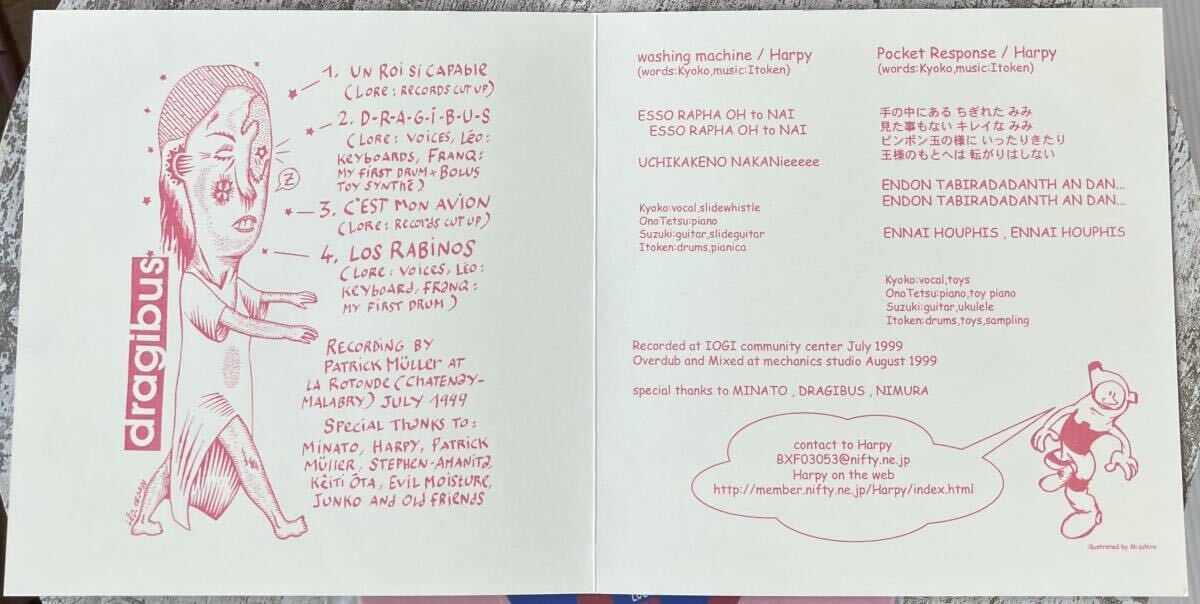 dragibus
1. UN ROI SI CAPABLE
(LORE: RECORDS CUT UP)
2. D-R-A-G-I-B-U-S
(LORE: VOICES, LÉO:
KEYBOARDS, FRANQ:
MY FIRST DRUM + BOLUS
TOY SYNTHÉ)
3. C'EST MON AVION
(LORE: RECORDS CUT UP)
4. LOS RABINOS
(LORE: VOICES, LÉO:
KEYBOARD, FRANQ:
MY FIRST DRUM)
Z
RECORDING BY
PATRICK MÜLLER AT
LA ROTONDE (CHATENAY-
MALABRY) JULY 1999
SPECIAL THANKS TO:
MINATO, HARPY, PATRICK
MÜLLER, STEPHEN-AMANITA,
KÉITI ÔTA, EVIL MOISTURE,
JUNKO AND OLD FRIENDS
washing machine / Harpy
(words:Kyoko,music:Itoken)
ESSO RAPHA OH to NAI
ESSO RAPHA OH to NAI
UCHIKAKENO NAKANieeeee
Kyoko:vocal,slidewhistle
OnoTetsu:piano
Suzuki:guitar,slideguitar
Itoken:drums,pianica
Pocket Response / Harpy
(words:Kyoko,music:Itoken)
手の中にある ちぎれた みみ
見た事もない キレイな みみ
ピンポン玉の様に いったりきたり
王様のもとへは 転がりはしない
ENDON TABIRADADANTH AN DAN...
ENDON TABIRADADANTH AN DAN...
ENNAI HOUPHIS , ENNAI HOUPHIS
Kyoko:vocal,toys
OnoTetsu:piano,toy piano
Suzuki:guitar,ukulele
Itoken:drums,toys,sampling
Recorded at IOGI community center July 1999
Overdub and Mixed at mechanics studio August 1999
special thanks to MINATO , DRAGIBUS , NIMURA
contact to Harpy
BXF03053@nifty.ne.jp
Harpy on the web
http://member.nifty.ne.jp/Harpy/index.html
illustrated by Mizuhiro